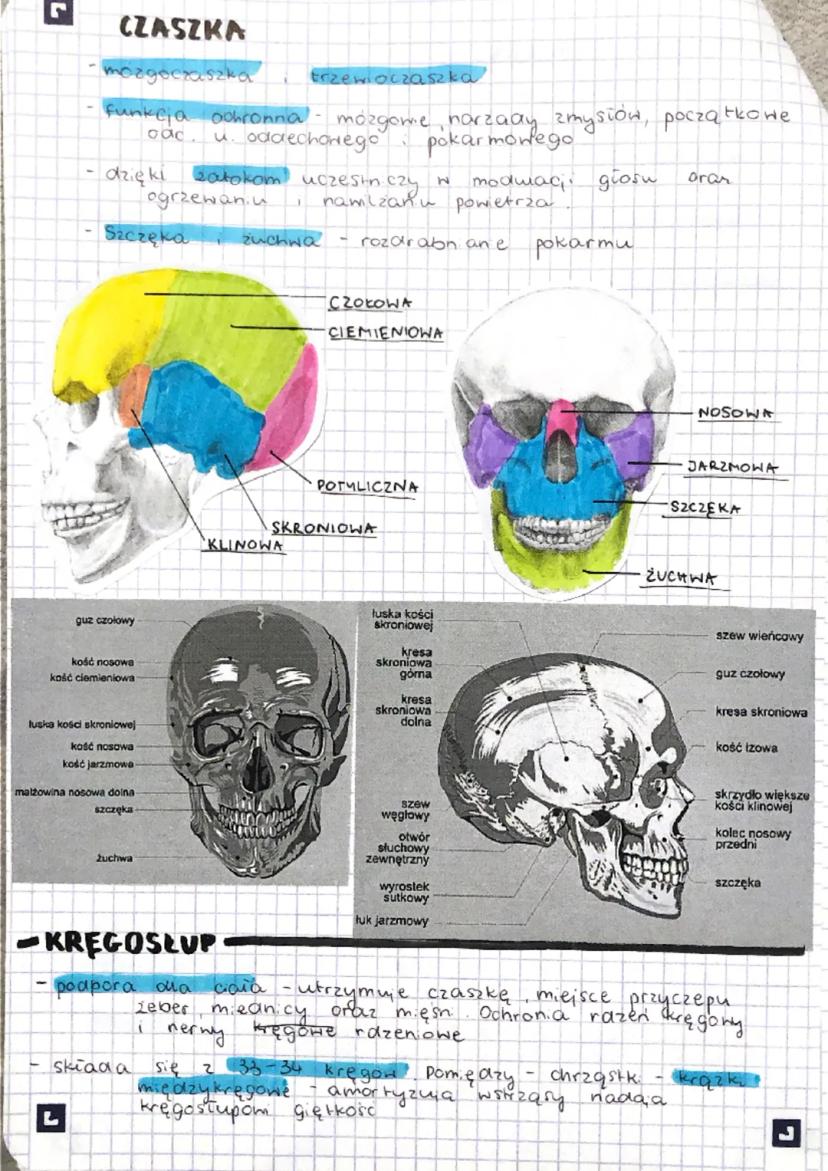 CZASZKA
- mózgoczaszka i trzewioczaszka
- funkcja ochronna - mózgowie, narządy zmysłów, początkowe
odc. u. oddechowego i pokarmowego
- dzięki zatokom uczestniczy w modulacji głosu oraz
ogrzewaniu i nawilżaniu powietrza.
- Szczęka i żuchwa - rozdrabnianie pokarmu
CZOŁOWA
CIEMIENIOWA
POTYLICZNA
SKRONIOWA
KLINOWA
NOSOWA
JARZMOWA
SZCZĘKA
ŻUCHWA
guz czołowy
kość nosowa
kość ciemieniowa
łuska kości skroniowej
kość nosowa
kość jarzmowa
małżowina nosowa dolna
szczęka
żuchwa
łuska kości
skroniowej
kresa
skroniowa
górna
kresa
skroniowa
dolna
szew
węgłowy
otwór
słuchowy
zewnętrzny
wyrostek
sutkowy
łuk jarzmowy
szew wieńcowy
guz czołowy
kresa skroniowa
kość łzowa
skrzydło większe
kości klinowej
kolec nosowy
przedni
szczęka
KRĘGOSŁUP
- podpora dla ciała - utrzymuje czaszkę, miejsce przyczepu
żeber, miednicy oraz mięśni. Ochrona rdzeń kręgowy
i nerwy kręgowe rdzeniowe
- składa się z 33-34 kręgów. Pomiędzy - chrząstki - krążki
międzykręgowe - amortyzują wstrząsy nadają
kręgosłupowi giętkość